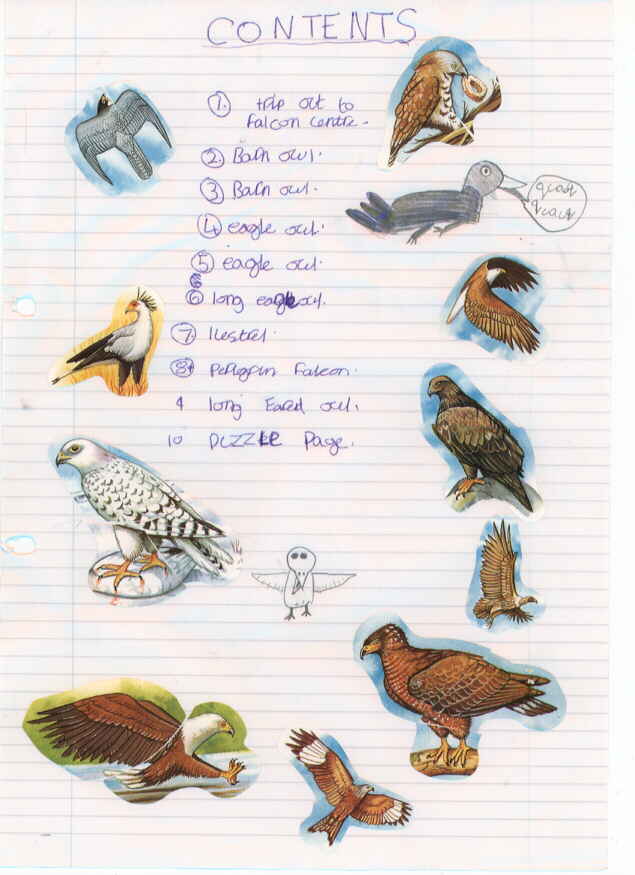 CONTENTS
1. trip out to
Falcon centre.
2. Barn owl.
3 Barn owl.
4 eagle owl.
5 eagle owl.
6
6 long eagle owl.
7. Kestrel.
8 Perigrin Falcon.
9 long Eared owl.
10 PUZZLE Page.
quack
quack